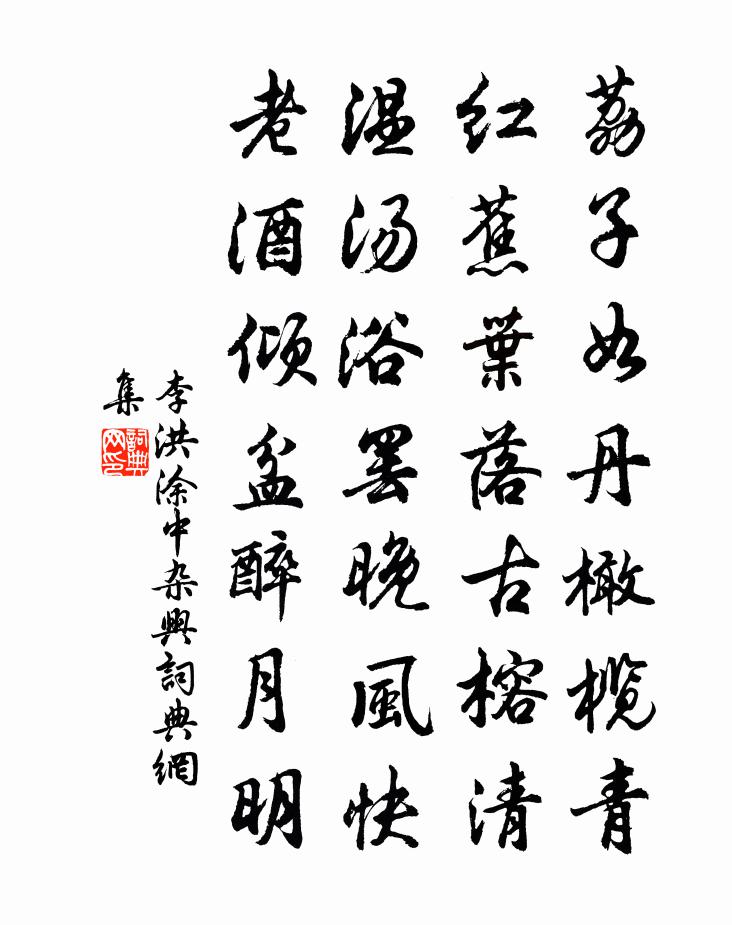 荔子如丹橄榄青
红蕉葉落古榕清
温汤浴罢晚風快
老酒倾盆醉月明
李洪涂中杂興詞典網
集
詞典
网印